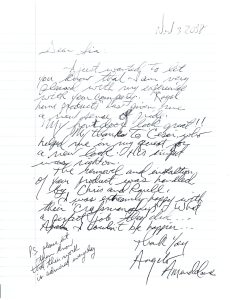 Nov 3 2008
Dear Sir
I just wanted to let
you know that I am very
pleased with my experience
with your company. Royal
home products has given me
a new sense of
"My front door looks great"!!
My thanks to
helped me in my quest for
a new look. His insight
was right on.
The removal and installation
of your product was handled
by Chris and
I was extremely happy with
their craftsmanship! What
a perfect job they did...
Again I couldn't be happier...
Thank You
Angela
PS please let
them know
that their work
is admired everyday